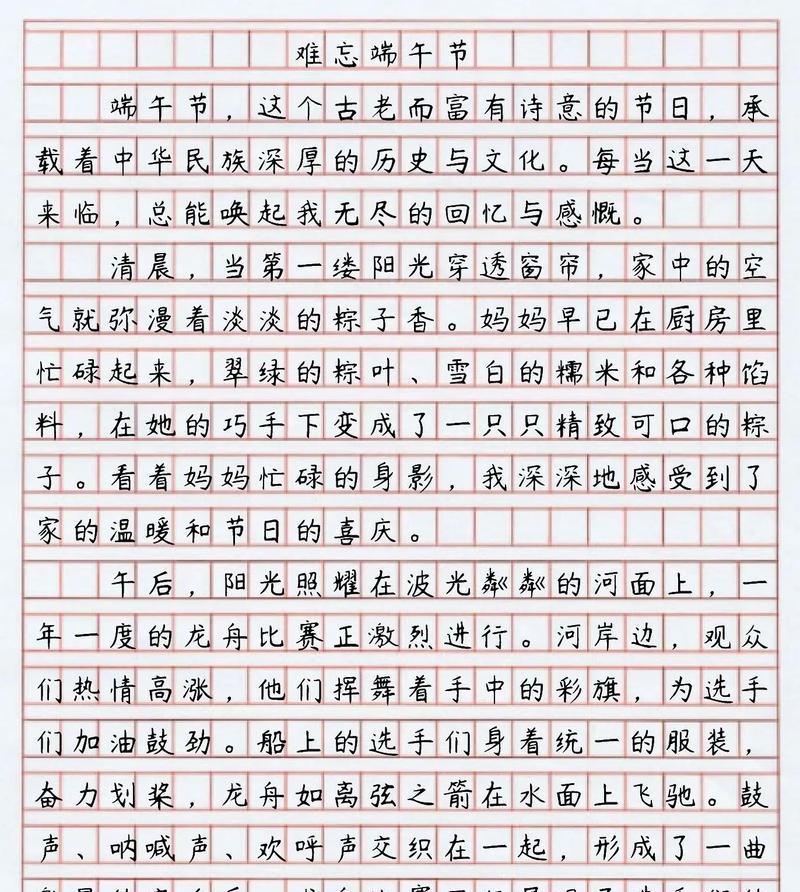 难忘端午节
端午节，这个古老而富有诗意的节日，承
载着中华民族深厚的历史与文化。每当这一天
来临，总能唤起我无尽的回忆与感慨。
清晨，当第一缕阳光穿透窗帘，家中的空
气就弥漫着淡淡的粽子香。妈妈早已在厨房里
忙碌起来，翠绿的粽叶、雪白的糯米和各种馅
料，在她的巧手下变成了一只只精致可口的粽
子。看着妈妈忙碌的身影，我深深地感受到了
家的温暖和节日的喜庆。
午后，阳光照耀在波光粼粼的河面上，一
年一度的龙舟比赛正激烈进行。河岸边，观众
们热情高涨，他们挥舞着手中的彩旗，为选手
们加油鼓劲。船上的选手们身着统一的服装，
奋力划桨，龙舟如离弦之箭在水面上飞驰。鼓
声、呐喊声、欢呼声交织在一起，形成了一曲